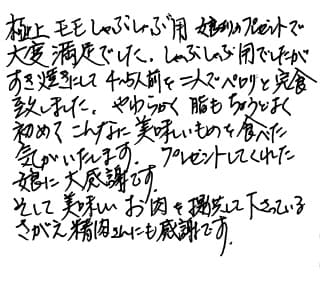 極上モモしゃぶしゃぶ用 娘からのプレゼントで
大変満足でした。しゃぶしゃぶ用でしたが
すき焼きにして4~5人前を二人でペロリと完食
致しました。やわらかく脂もちょうどよく
初めてこんなに美味しいものを食べた
気がいたします。プレゼントしてくれた
娘に大感謝です。
そして美味しいお肉を提供して下さっている
さがえ精肉さんにも感謝です。